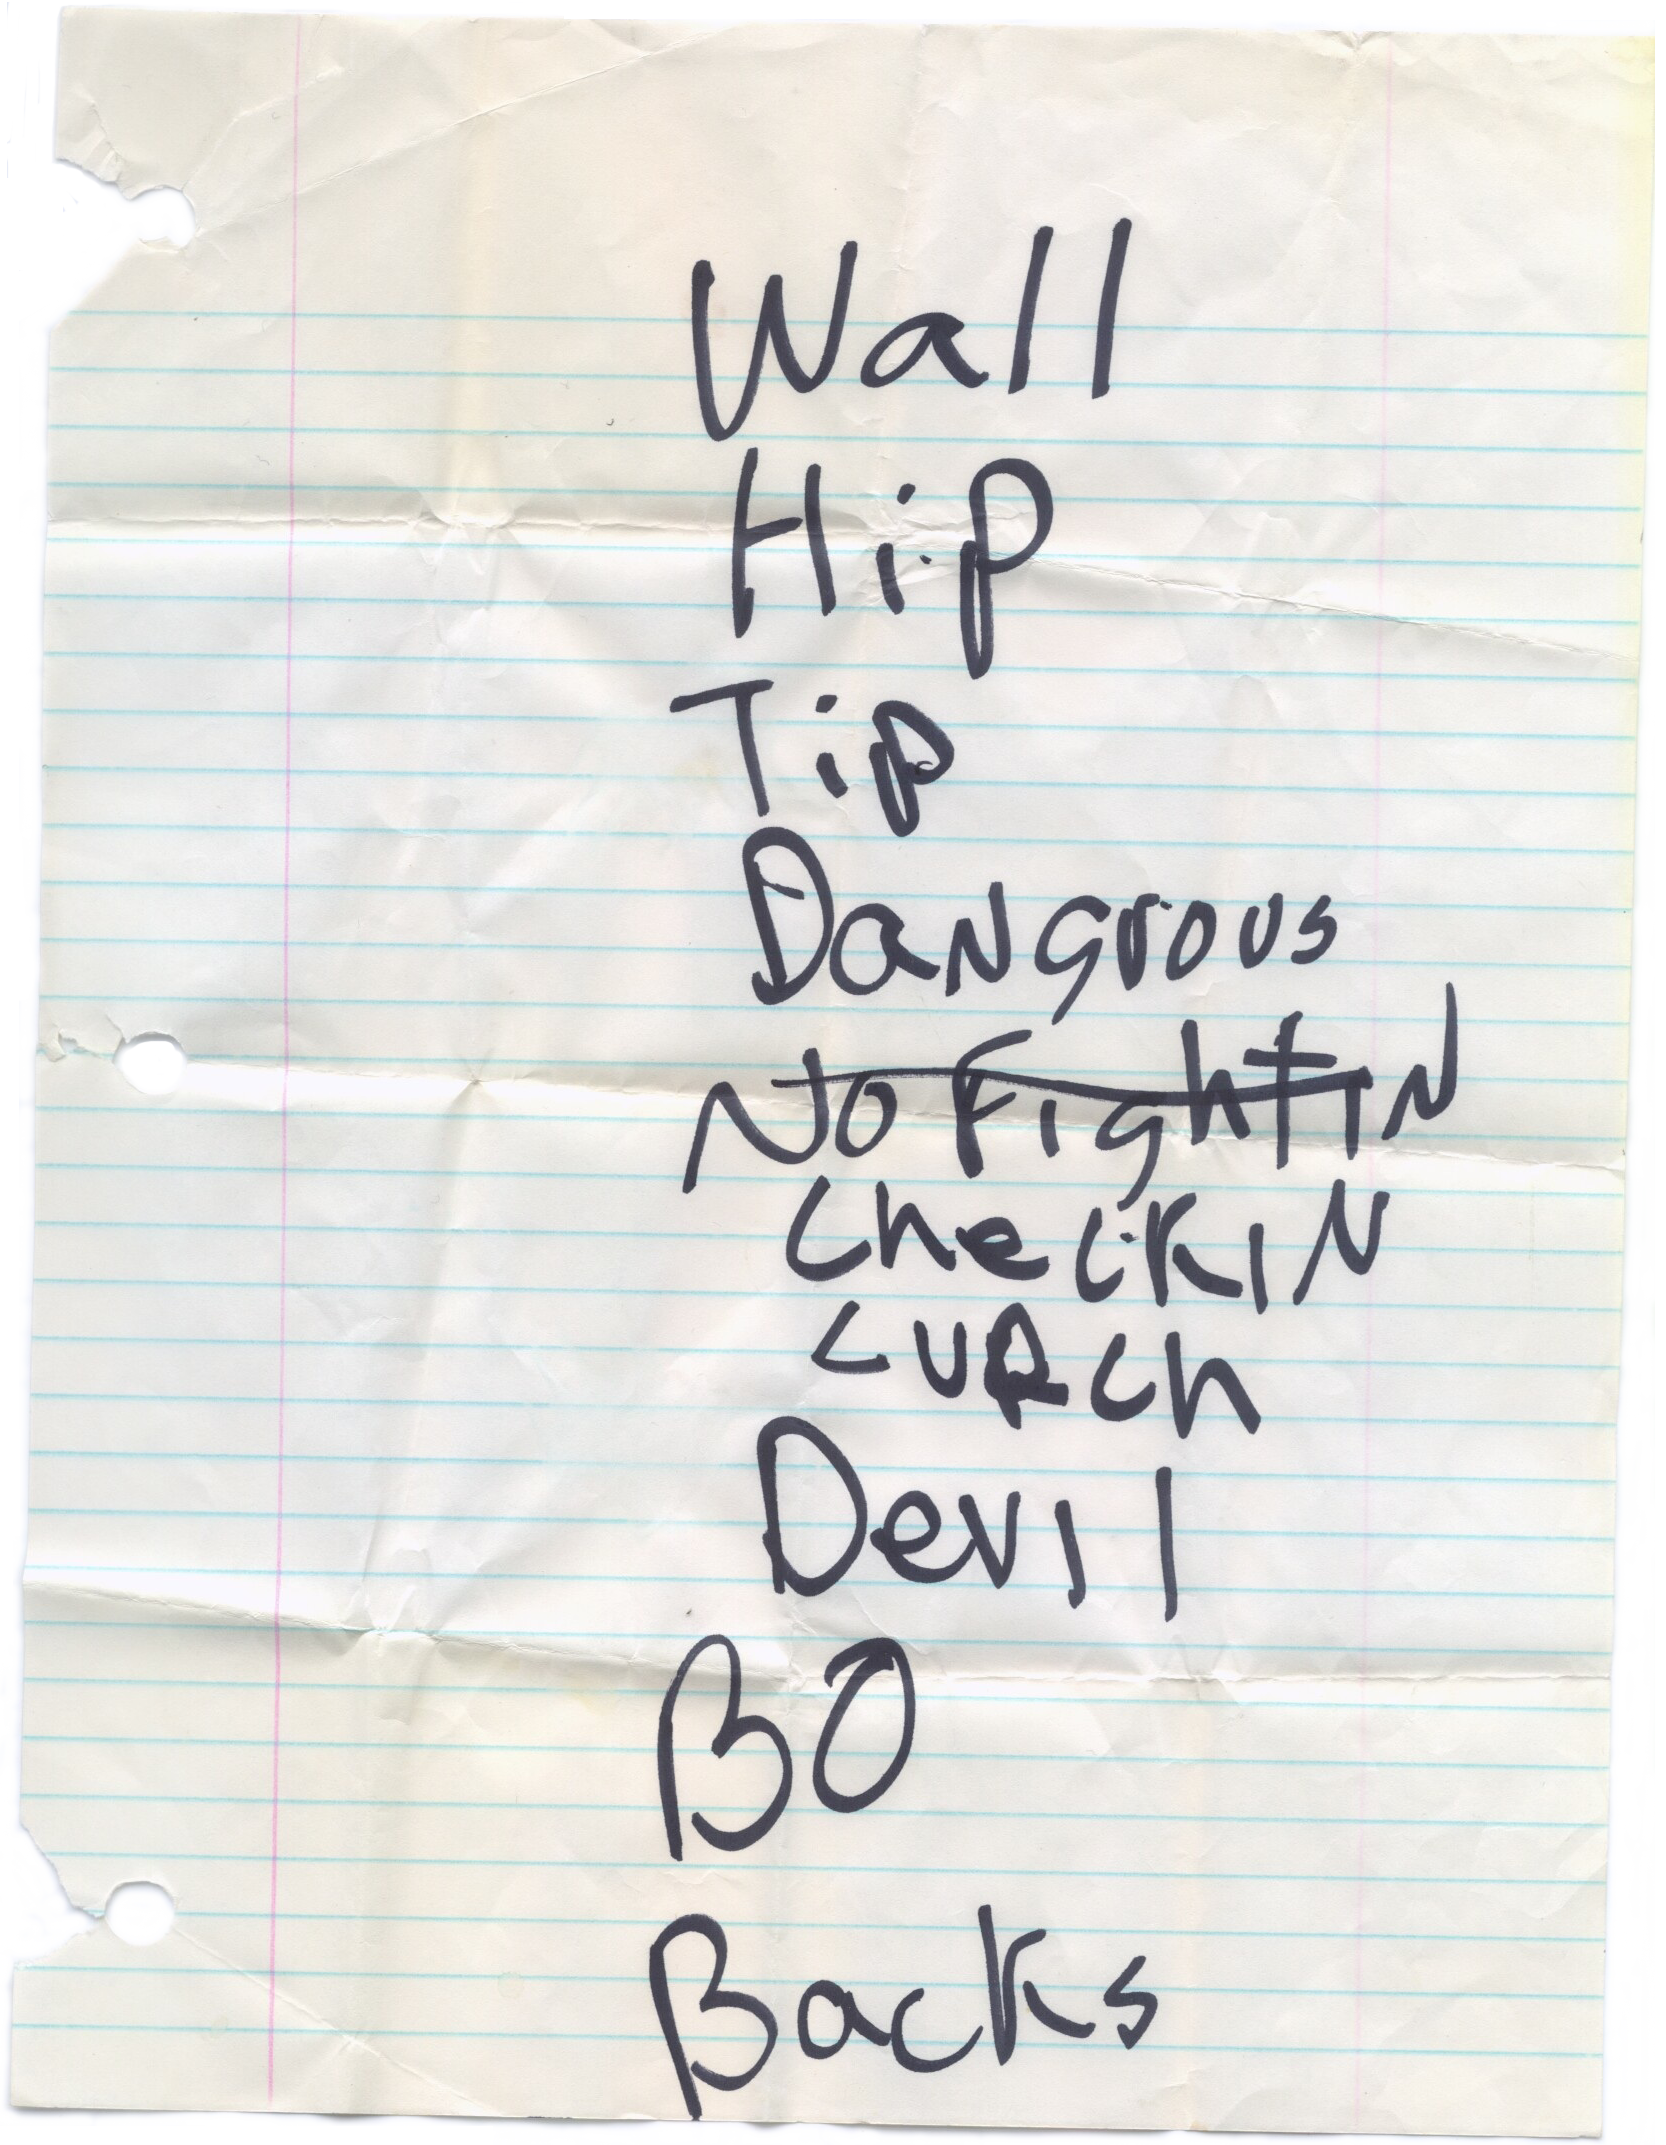 Wall
Hip
Tip
Dangrous
No FightiN
CheckIN
LURch
Devil
BO
Backs